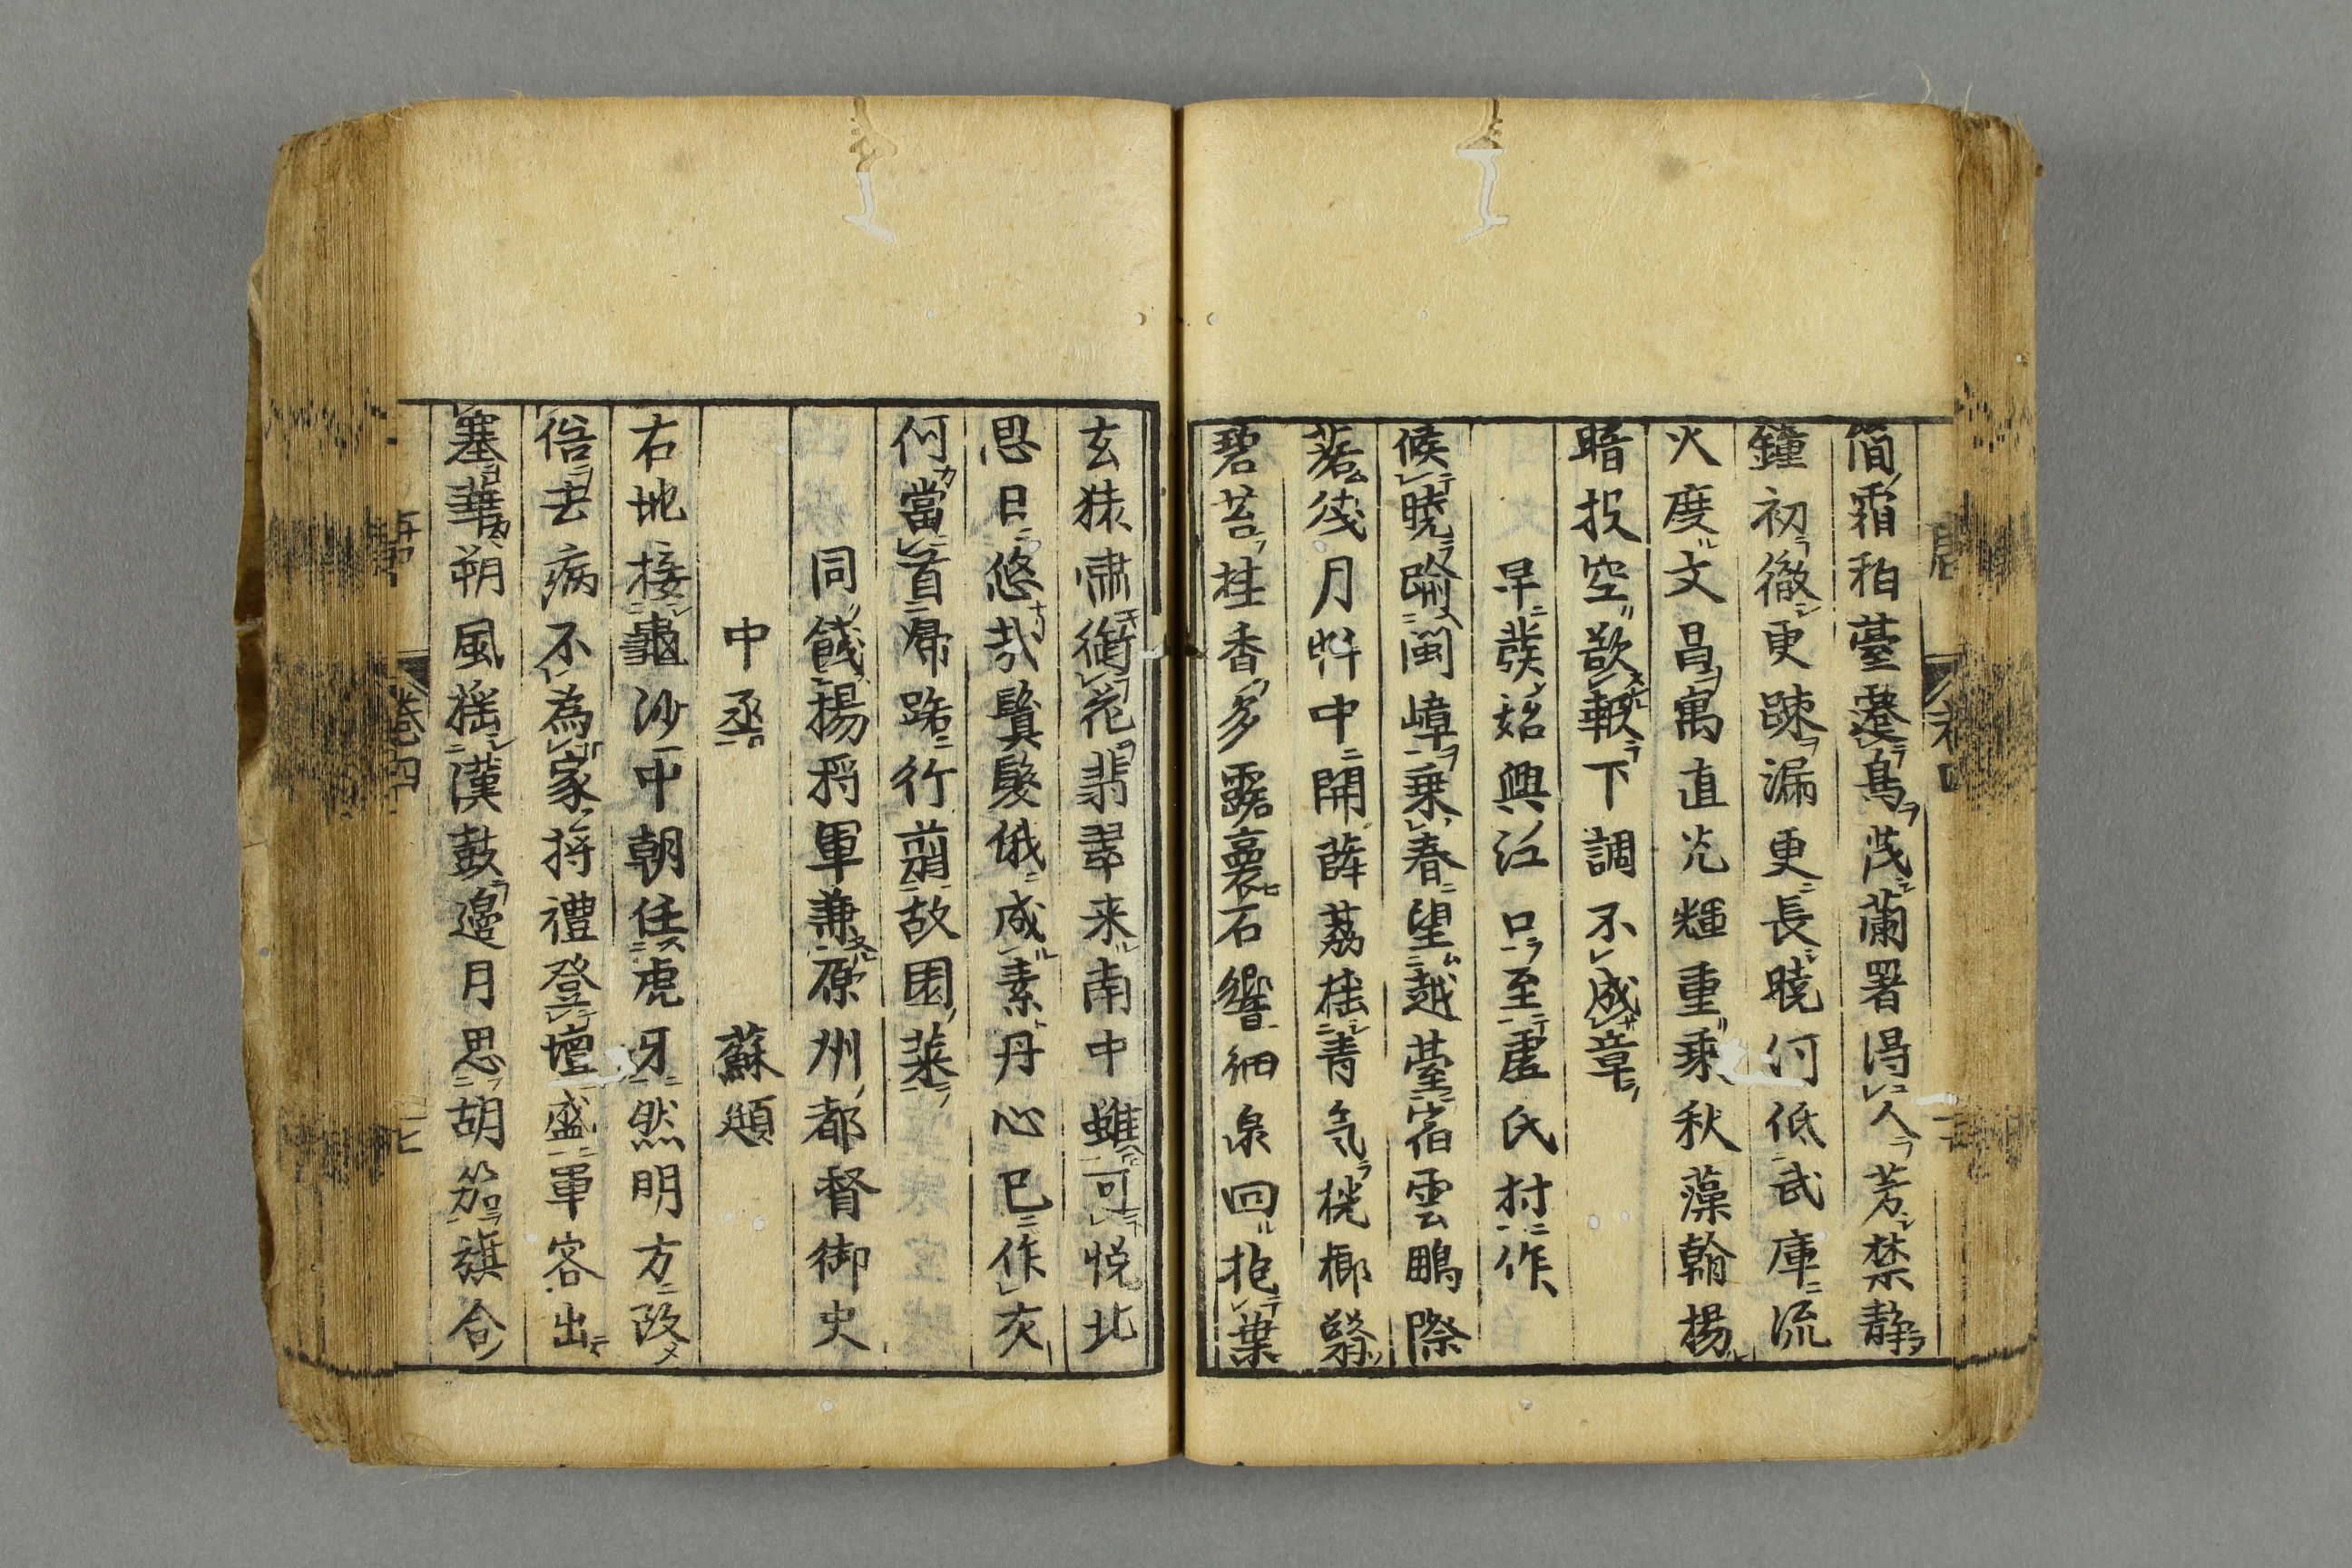 簡霜稍臺遷鳥茂蘭署得人芳禁静
鐘初徹更踈漏更長曉何低武庫流
火度文昌寓直光輝重乘秋藻翰揚
暗投空欲報下調不成章
早發始興江口至虚氏村作
候曉踰閩嶂乗春望越臺宿雲鵬際
落殘月蚌中開薜荔揺青気桄榔翳
碧苔桂香多露裛石響細泉回抱葉
玄猿嘯銜花翡翠来南中雖可悦北
思日悠哉鬒髮俄成素丹心已作灰
何當首帰路行剪故園萊
同餞揚将軍兼原州都督御史
中丞
蘇頲
右地接龜沙中朝任虎牙然明方改
俗去病不為家将禮登壇盛軍容出
塞華朔風揺漢鼓邊月思胡笳旗合
卷四